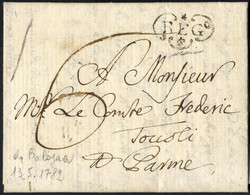 REG
A Monsieur
Mr. Le Comte Frederic
Tocoli
A Parme
da Bologna
13.5.1782